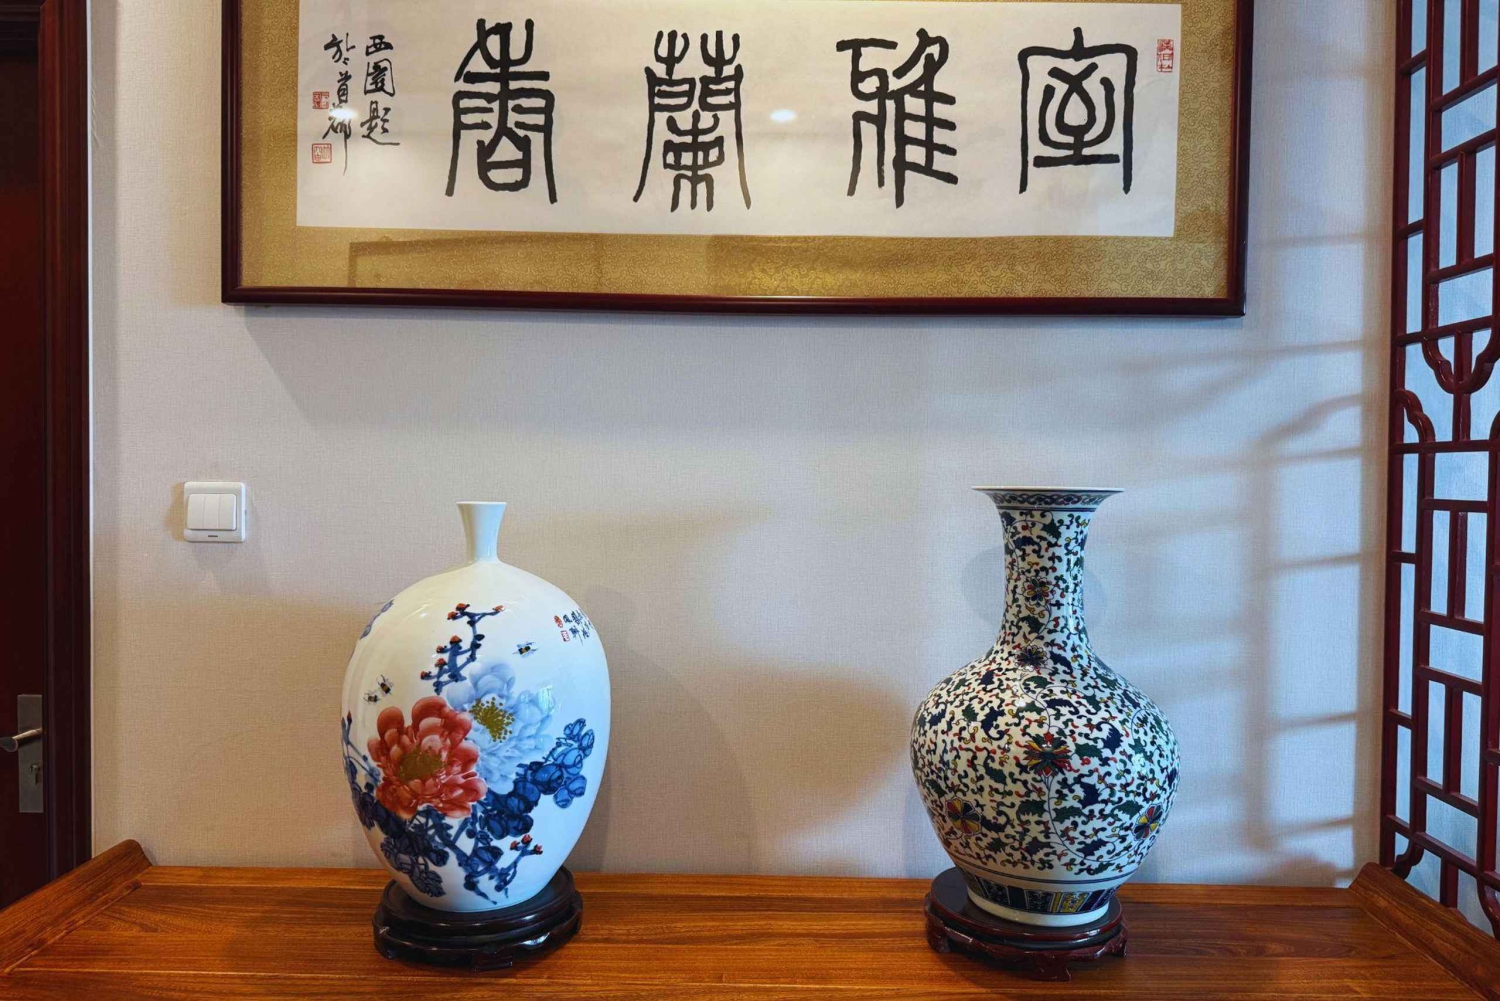 室雅蘭香
西園題
於首都